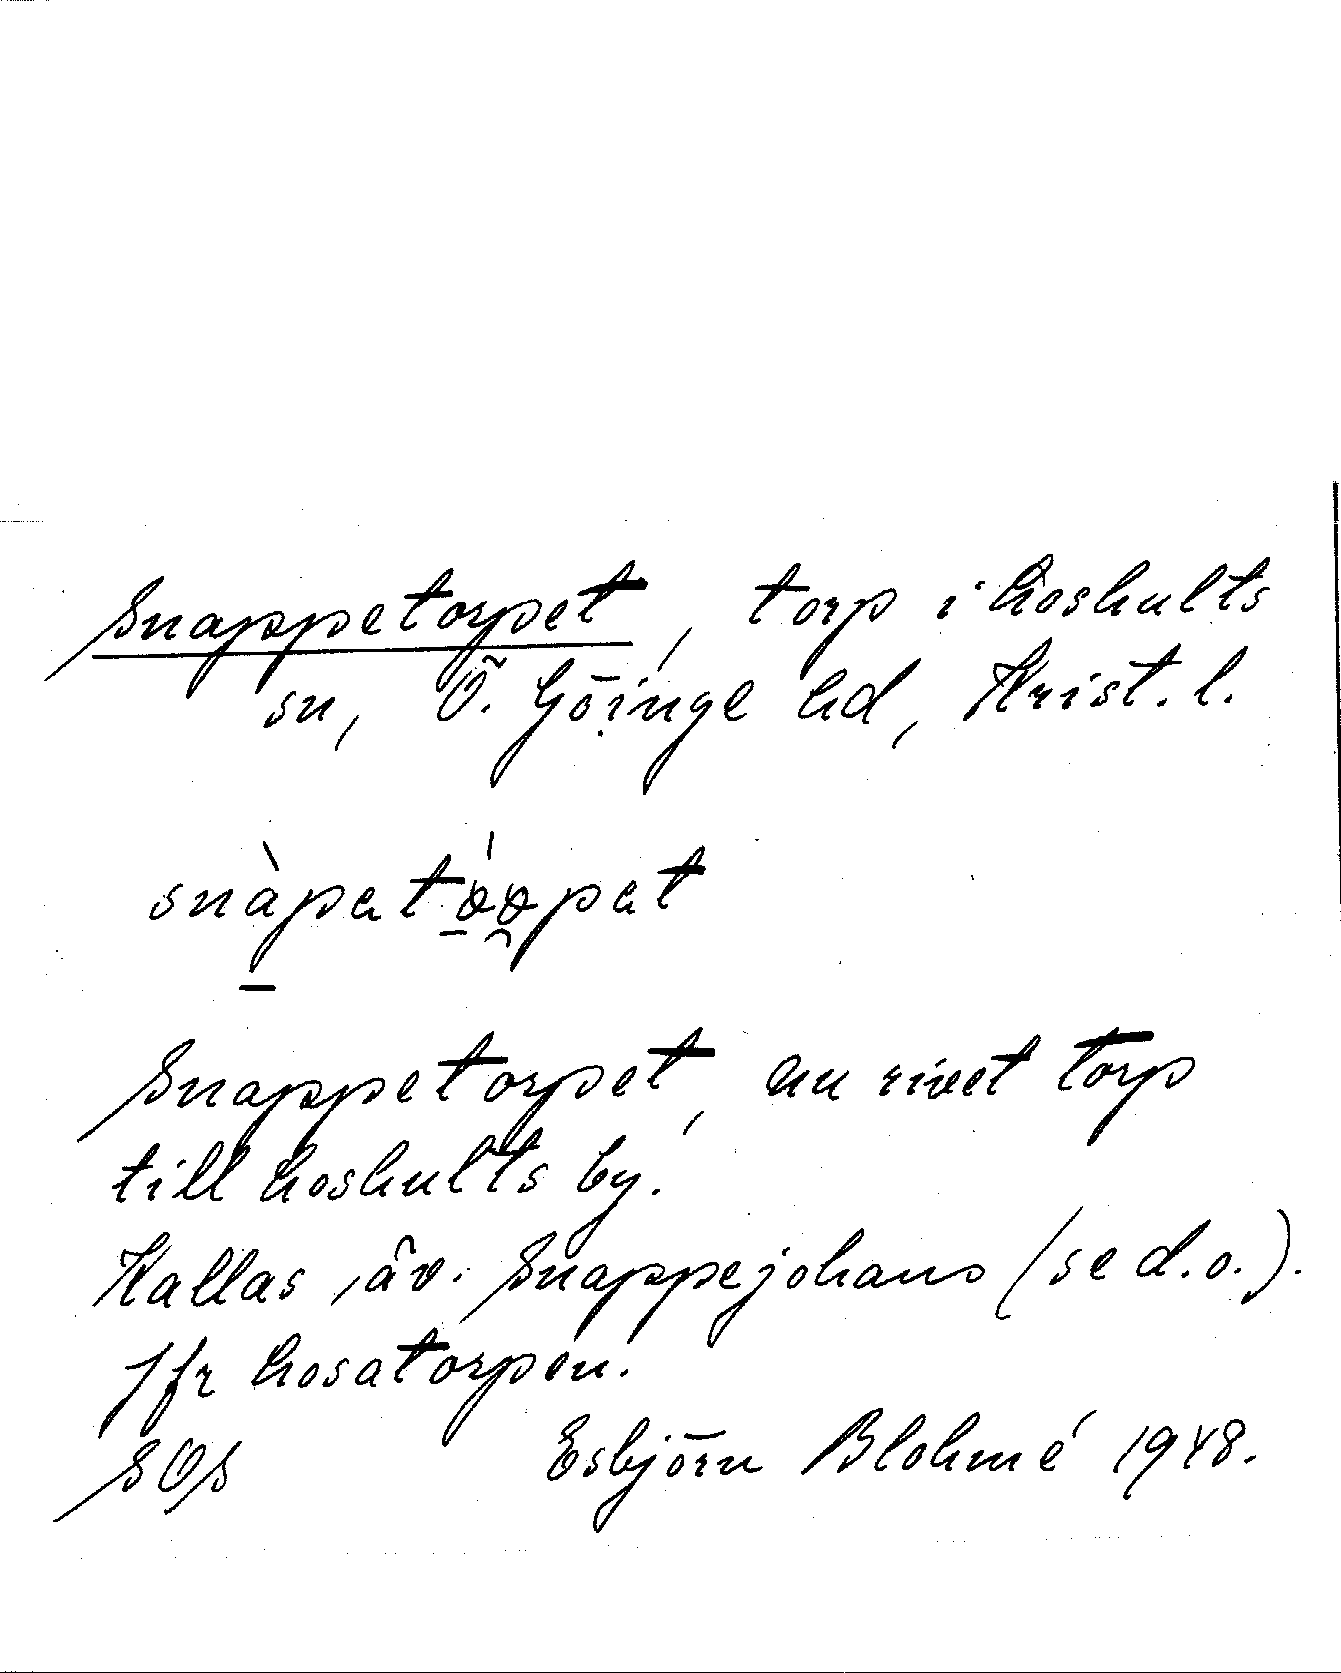 Snappetorpet, torp i Loshults
sn, Ö. Göinge hd, Krist. l.
Snappetorpet, nu rivet torp
till Loshults by.
Kallas äv. Snappejohans (se d.o.).
Jfr Losatorpen.
SOS Esbjörn Blohmé 1948.